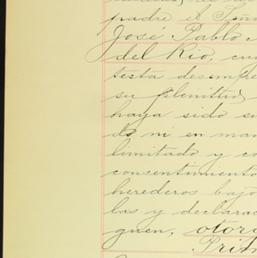 padre el
José Pablo
del Rio, cu
testa desempe
su plenitud
haya sido su
do ni en man
limitado y co
consentimiento
herederos bajo
las y declarac
guen, otorg
Prim